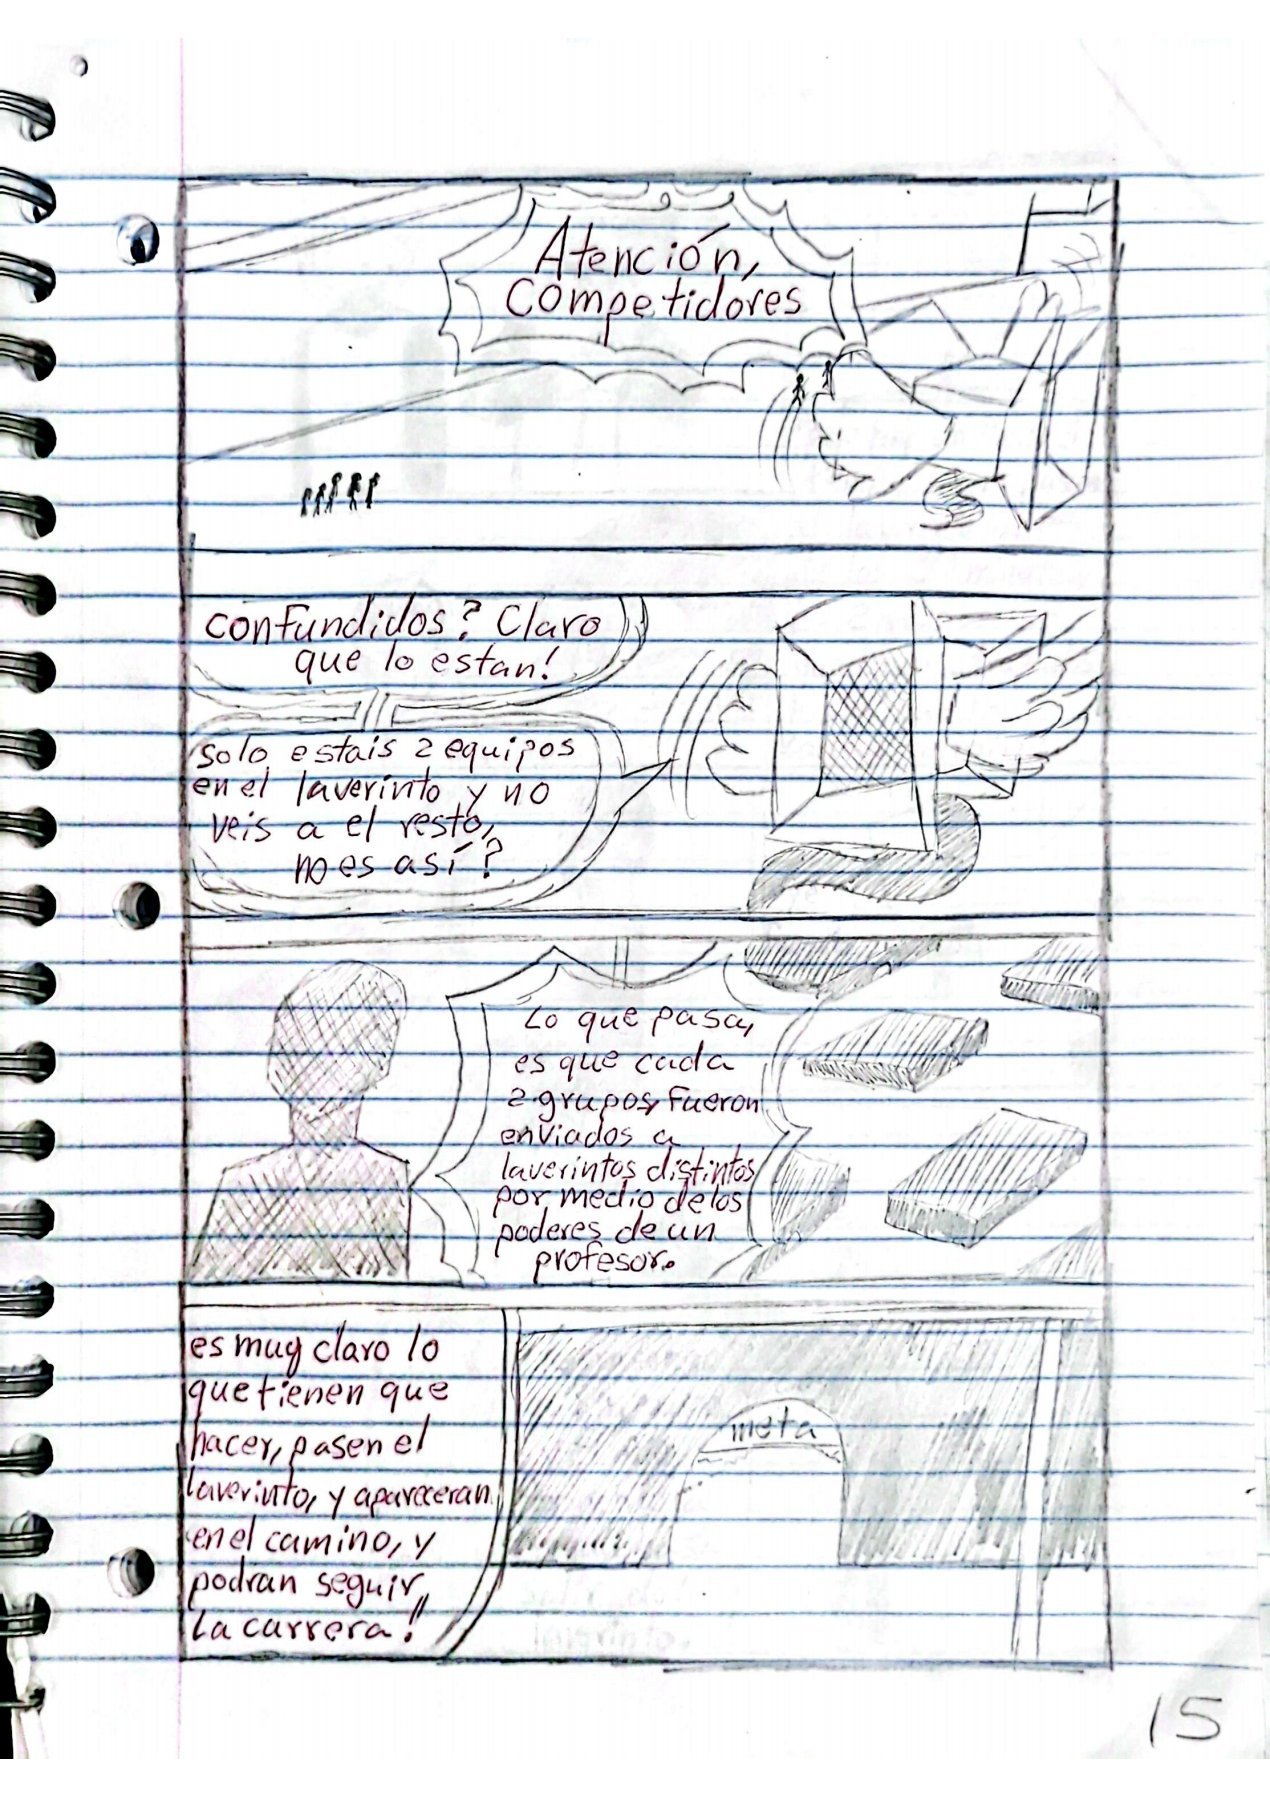 Atención,
Competidores
confundidos? Claro
que lo estan!
Solo estais 2 equipos
en el laverinto y no
veis a el resto,
no es así?
Lo que pasa,
es que cada
2 grupos, fueron
enviados a
laverintos distintos
por medio de los
poderes de un
profesor.
es muy claro lo
que tienen que
hacer, pasen el
laverinto, y apareceran
en el camino, y
podran seguir,
La carrera!!
meta
15